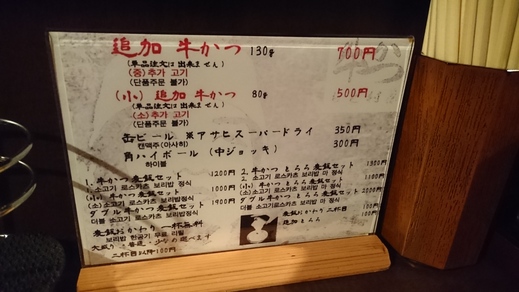 追加 牛かつ 130g 700円
(単品注文は出来ません)
(중) 추가 고기
(단품주문 불가)
(小) 追加 牛かつ 80g 500円
(単品注文は出来ません)
(소) 추가 고기
(단품주문 불가)
缶ビール ※アサヒスーパードライ 350円
캔맥주(아사히)
角ハイボール (中ジョッキ) 300円
하이볼
1. 牛かつ麦飯セット 1200円
1. 소고기 로스카츠 보리밥 정식
(小) 牛かつ麦飯セット 1000円
(소) 소고기 로스카츠 보리밥 정식
ダブル牛かつ麦飯セット 1900円
더블 소고기 로스카츠 보리밥 정식
2. 牛かつとろろ麦飯セット 1300円
2. 소고기 로스카츠 보리밥 마 정식
(小) 牛かつとろろ麦飯セット 1100円
(소) 소고기 로스카츠 보리밥 마 정식
ダブル牛かつとろろ麦飯セット 2000円
더블 소고기 로스카츠 보리밥 마 정식
麦飯おかわり 一杯無料
보리밥 한공기 무료 리필
二杯目以降100円
麦飯おかわり 二杯目 100円
追加とろろ 100円